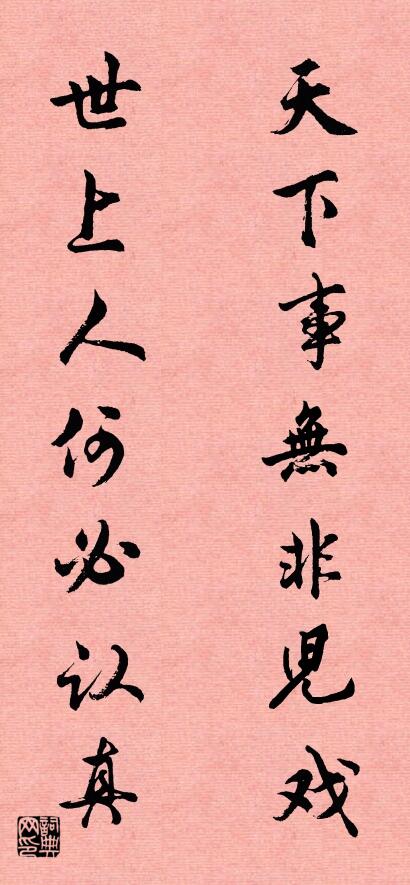 天下事無非兒戏
世上人何必认真
詞典网印